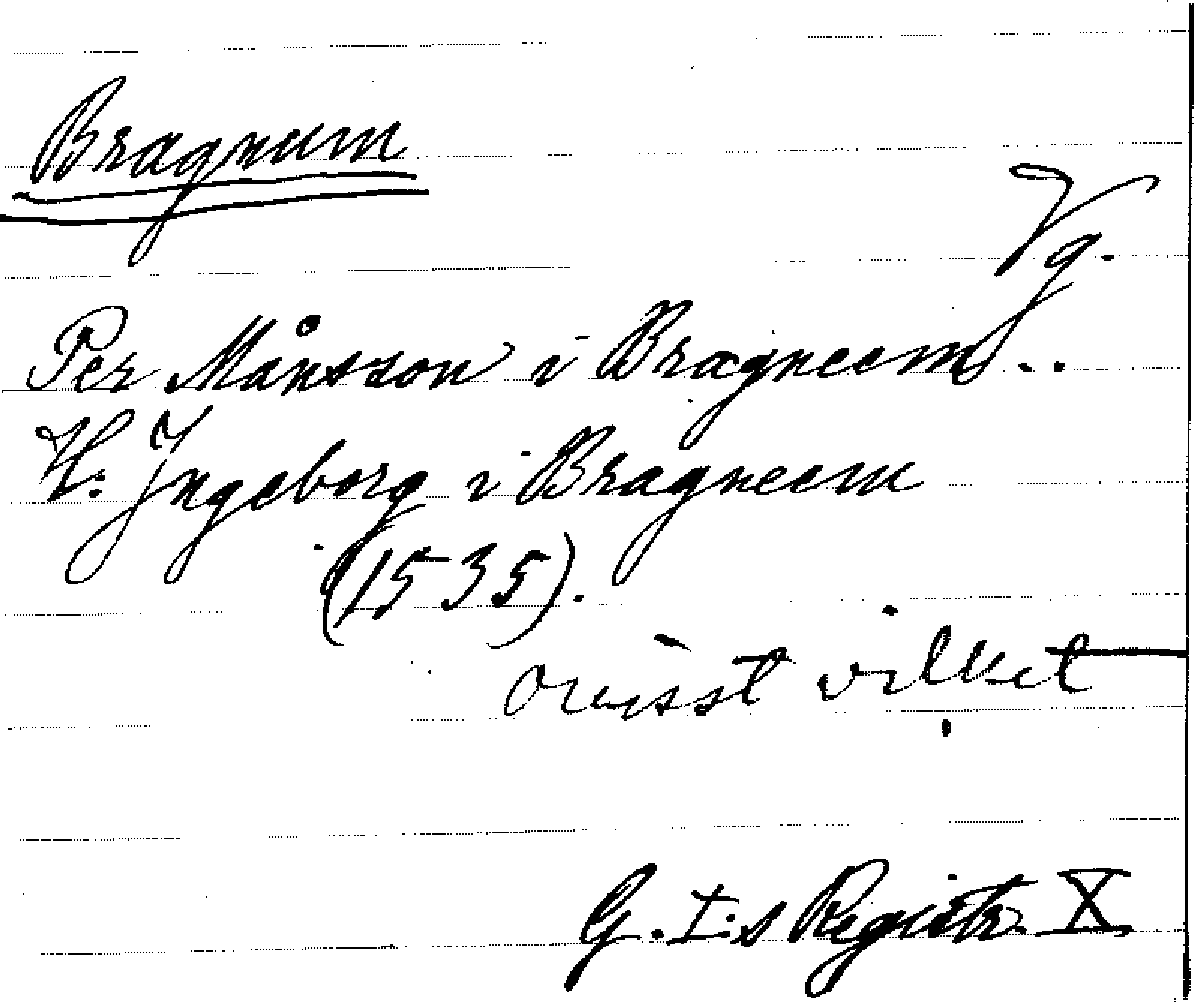 Bragnum
Vg.
Per Månsson i Bragneem..
H. Ingeborg i Bragneem
(1535).
ovisst vilket
G. I:s Registr. X